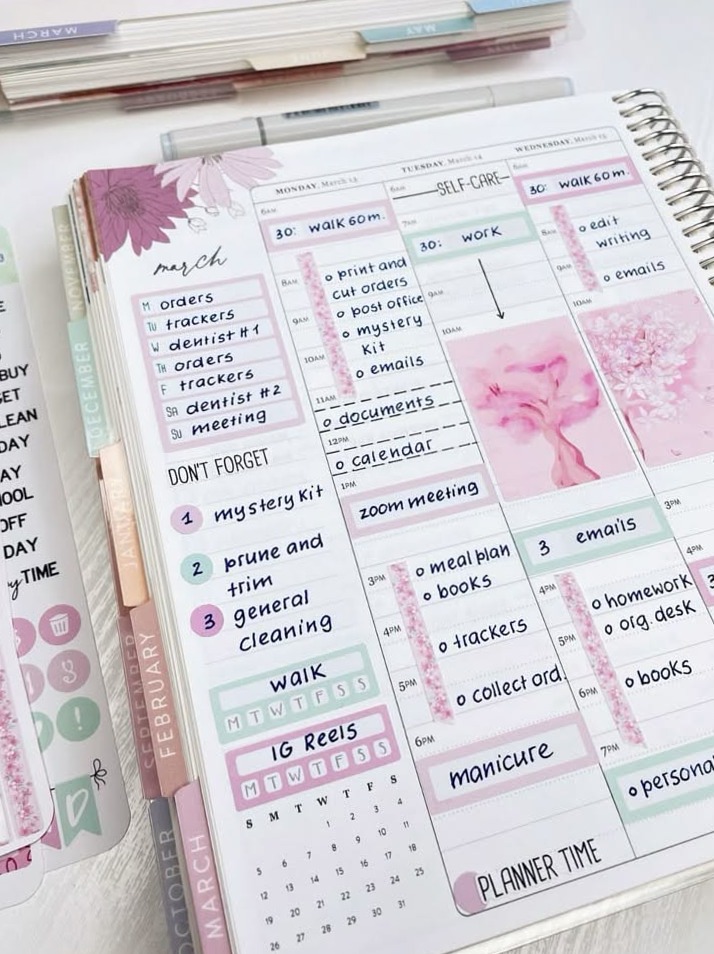 MARCH
MAY
MONDAY, March 13
TUESDAY, March 14
WEDNESDAY, March 15
NOVEMBER
DECEMBER
JANUARY
SEPTEMBER
FEBRUARY
OCTOBER
MARCH
E
BUY
GET
LEAN
DAY
AY
OOL
OFF
DAY
TIME
march
M orders
TU trackers
W dentist #1
TH orders
F trackers
SA dentist #2
SU meeting
DON'T FORGET
1 mystery kit
2 prune and
trim
3 general
cleaning
walk
M T W T F S S
IG Reels
M T W T F S S
S M T W T F S
1 2 3 4
5 6 7 8 9 10 11
12 13 14 15 16 17 18
19 20 21 22 23 24 25
26 27 28 29 30 31
6AM
30: walk 60m.
8AM
o print and
cut orders
9AM
o post office
o mystery
kit
10AM
o emails
11AM
o documents
12PM
o calendar
1PM
zoom meeting
3PM
o meal plan
o books
4PM
o trackers
5PM
o collect ord.
6PM
manicure
PLANNER TIME
6AM
SELF-CARE
7AM
30: work
9AM
10AM
3 emails
4PM
o homework
o org. desk
5PM
o books
6PM
7PM
o persona
6AM
30: walk 60m.
8AM
o edit
writing
9AM
o emails
10AM
3PM
4PM
3